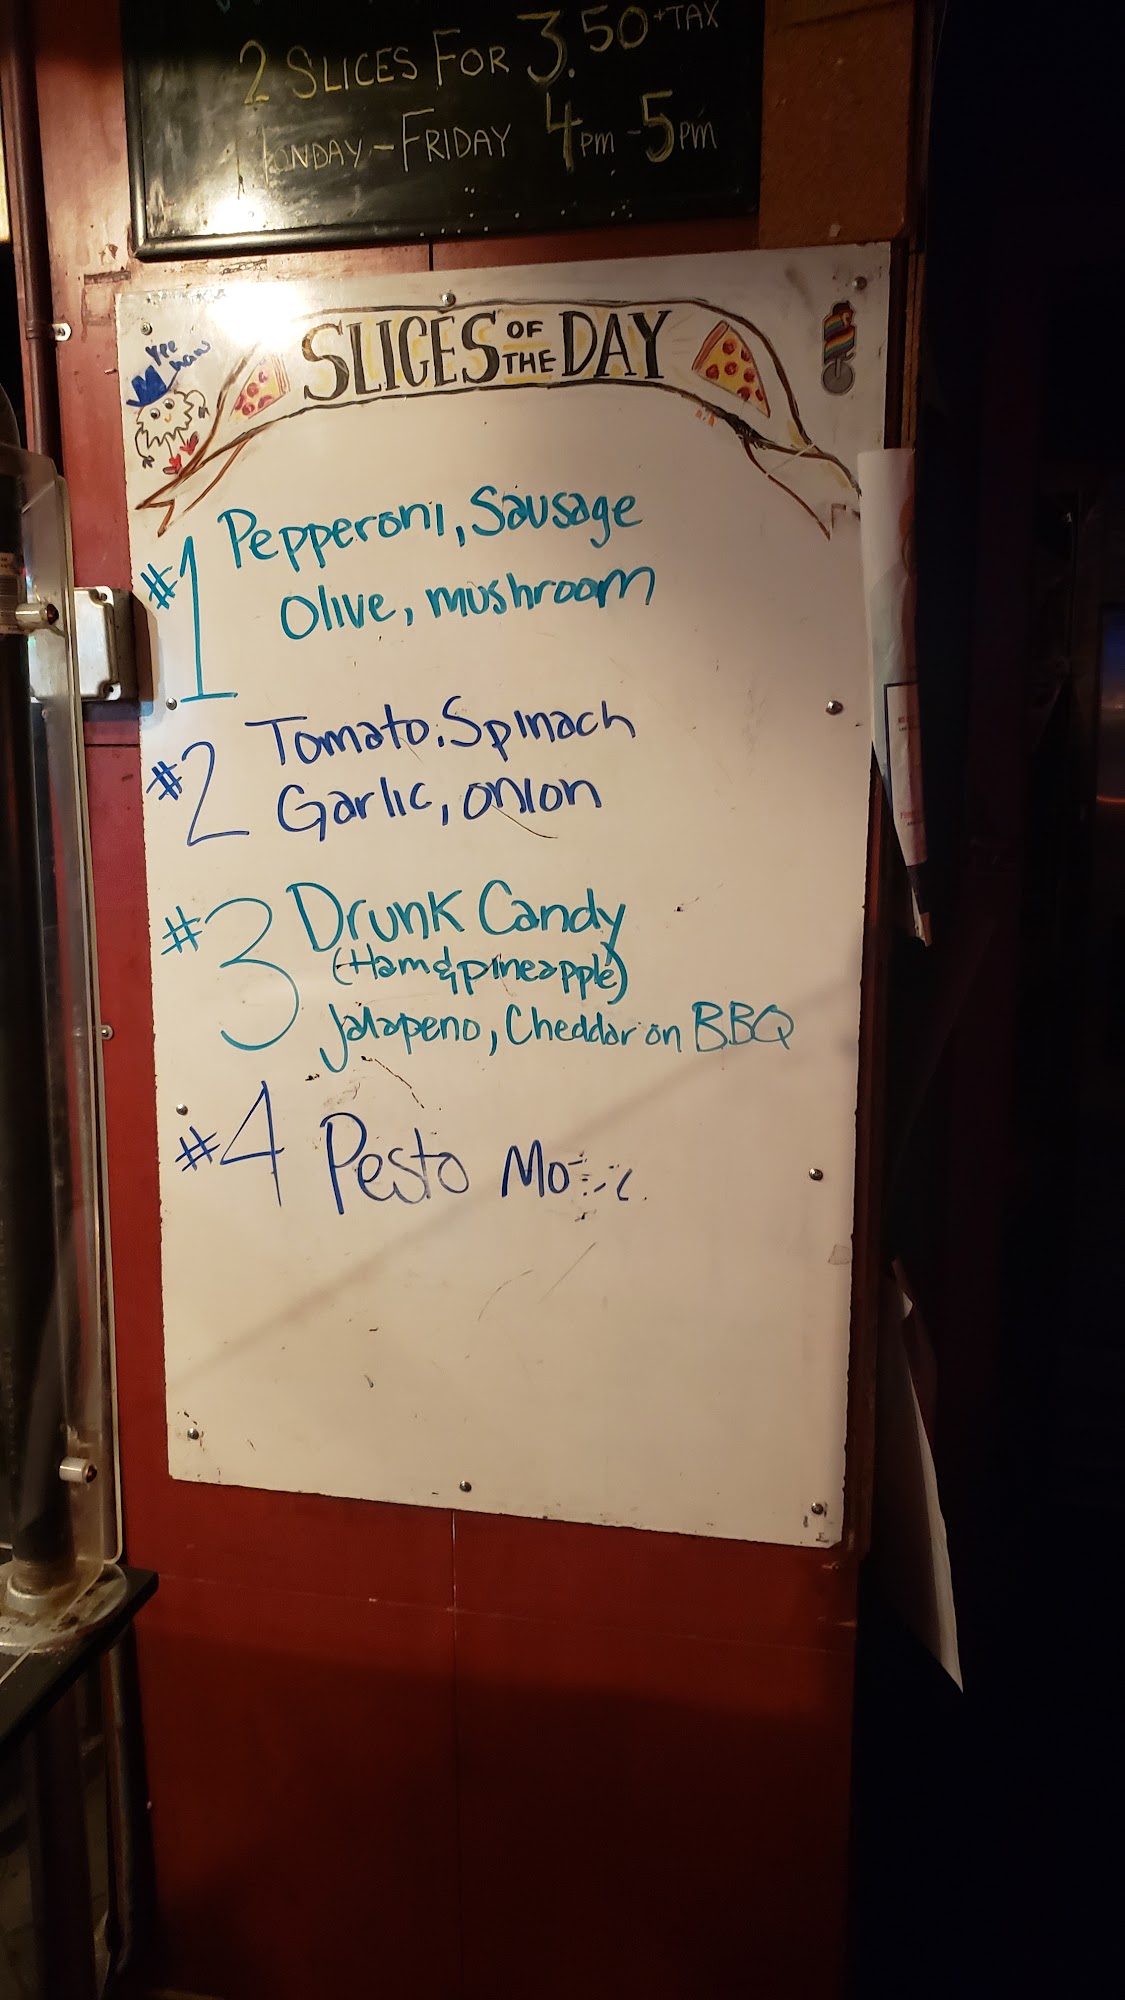 2 SLICES FOR 3.50 +TAX
MONDAY - FRIDAY 4PM - 5PM
Yee
haw
SLICES OF THE DAY
#1 Pepperoni, Sausage
Olive, mushroom
#2 Tomato, Spinach
Garlic, onion
#3 Drunk Candy
(Ham & pineapple)
Jalapeno, Cheddar on BBQ
#4 Pesto